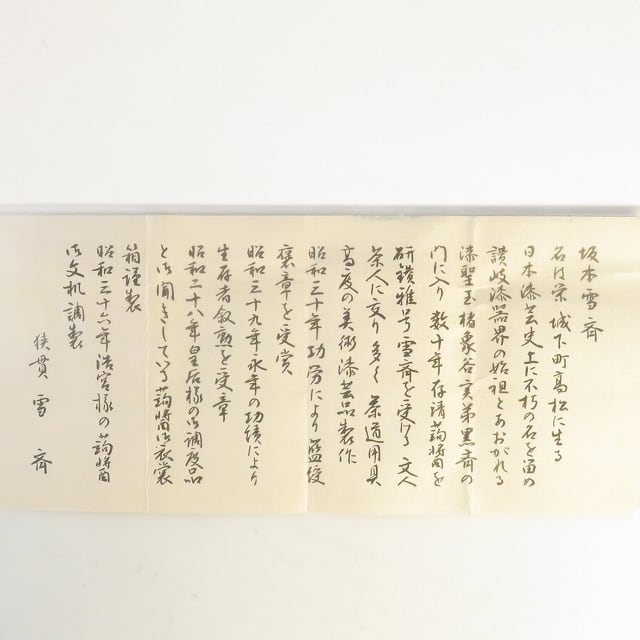 坂本雪斉
名は栄 城下町高松に生る
日本漆芸史上に不朽の名を留め
讃岐漆器界の始祖とあおがれる
漆聖玉楮象谷実弟黒斉の
門に入り 数十年存清蒟醤を
研鑚雅号雪斉を受ける 文人
茶人に交り多く茶道用具
高度の美術漆芸品製作
昭和三十年功労により藍綬
褒章を受賞
昭和三十九年永年の功績により
生存者叙勲を受章
昭和二十八年皇后様の御調度品
と御聞きしている蒟醤御衣裳
箱謹製
昭和三十六年浩宮様の蒟醤
御文机調製
貫雪斉